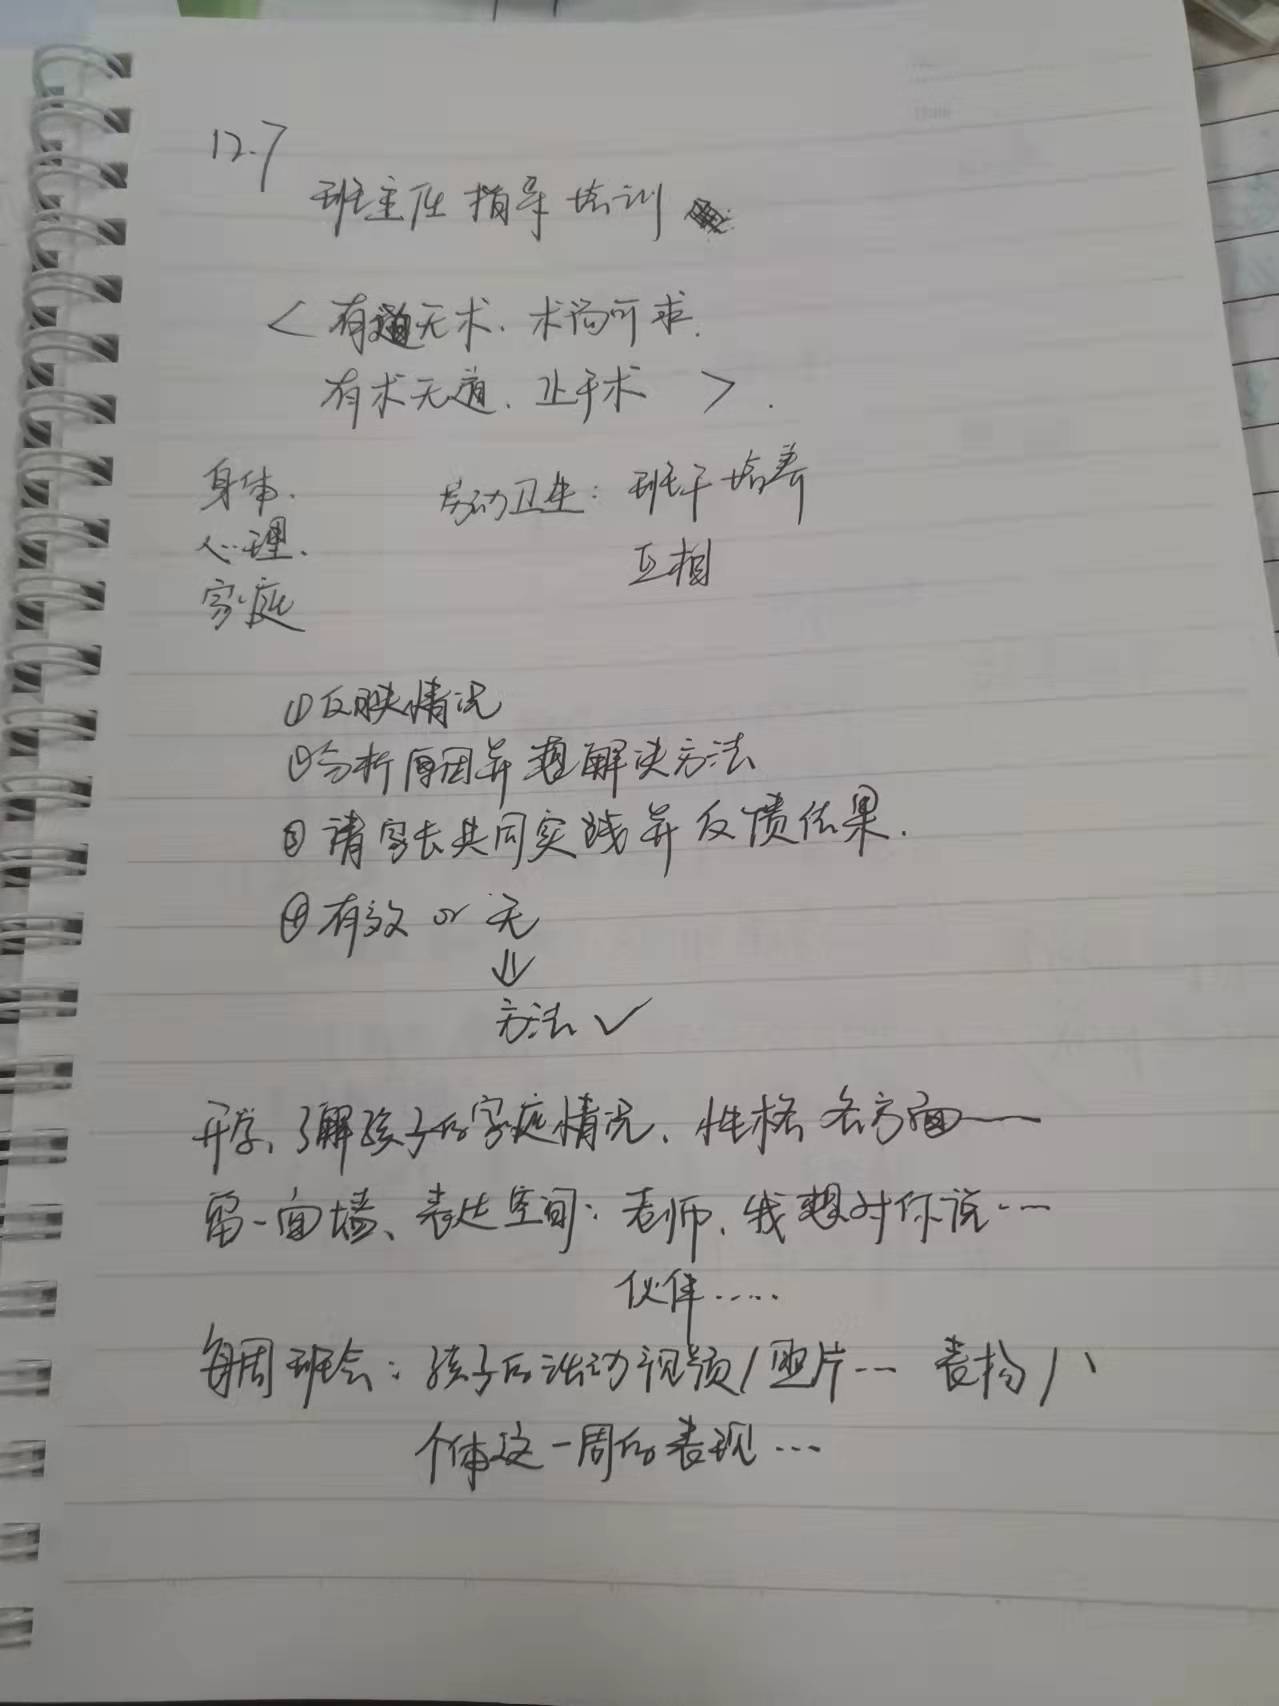 12.7
班主任指导培训
<有道无术、术尚可求.
有术无道、止于术>.
身体.
心理.
家庭
劳动卫生：班干培养
互相
①反映情况
②分析原因并想解决方法
③请家长共同实践并反馈结果.
④有效 or 无
↓
方法✓
开学，了解孩子的家庭情况、性格各方面—
留一面墙、表达空间：老师，我想对你说……
伙伴……
每周班会：孩子的活动视频/照片…表扬/
个体这一周的表现…